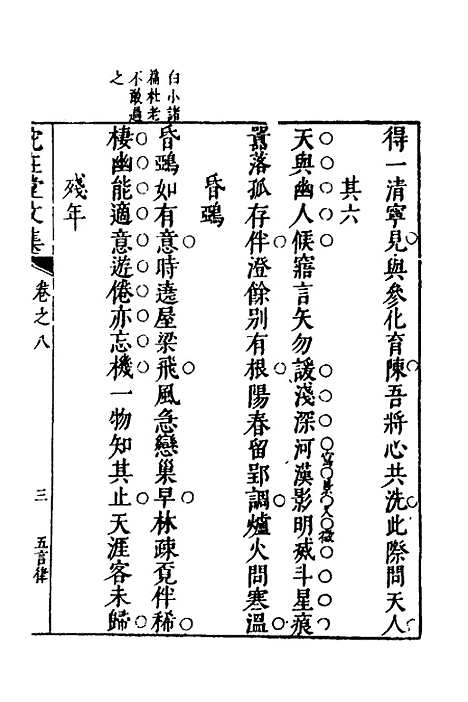 得一清寧見與參化育陳吾將心共洗此際問天人
其六
天與幽人候寤言矢勿諼淺深河漢影明滅斗星痕
寫景入微
囂落孤存伴澄餘別有根陽春留郢調爐火問寒溫
昏鵶
白小諸
篇杜老
不敢過
之
昏鵶如有意時遶屋梁飛風急戀巢早林疎覓伴稀
棲幽能適意遊倦亦忘機一物知其止天涯客未歸
殘年
堂文集
卷之八
三
五言律